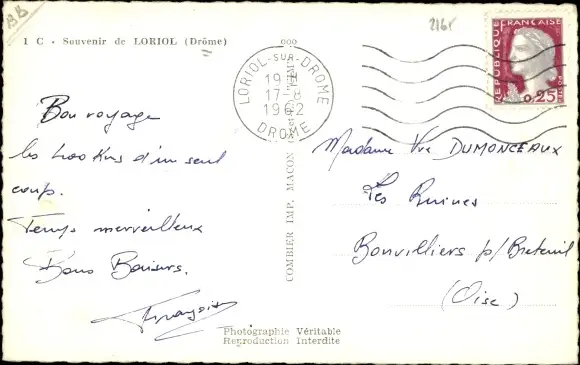 BB
1 C - Souvenir de LORIOL (Drôme)
216F
Bon voyage
les 400 Kms d'un seul
coup.
Temps merveilleux
Bons Baisers.
LORIOL-SUR-DROME
19 H
17-8
1962
DROME
COMBIER IMP. MACON
REPUBLIQUE FRANÇAISE
0,25
Madame Vve DUMONCEAUX
Les Ruines
Bonvilliers p/ Breteuil
(Oise)
Photographie Véritable
Reproduction Interdite